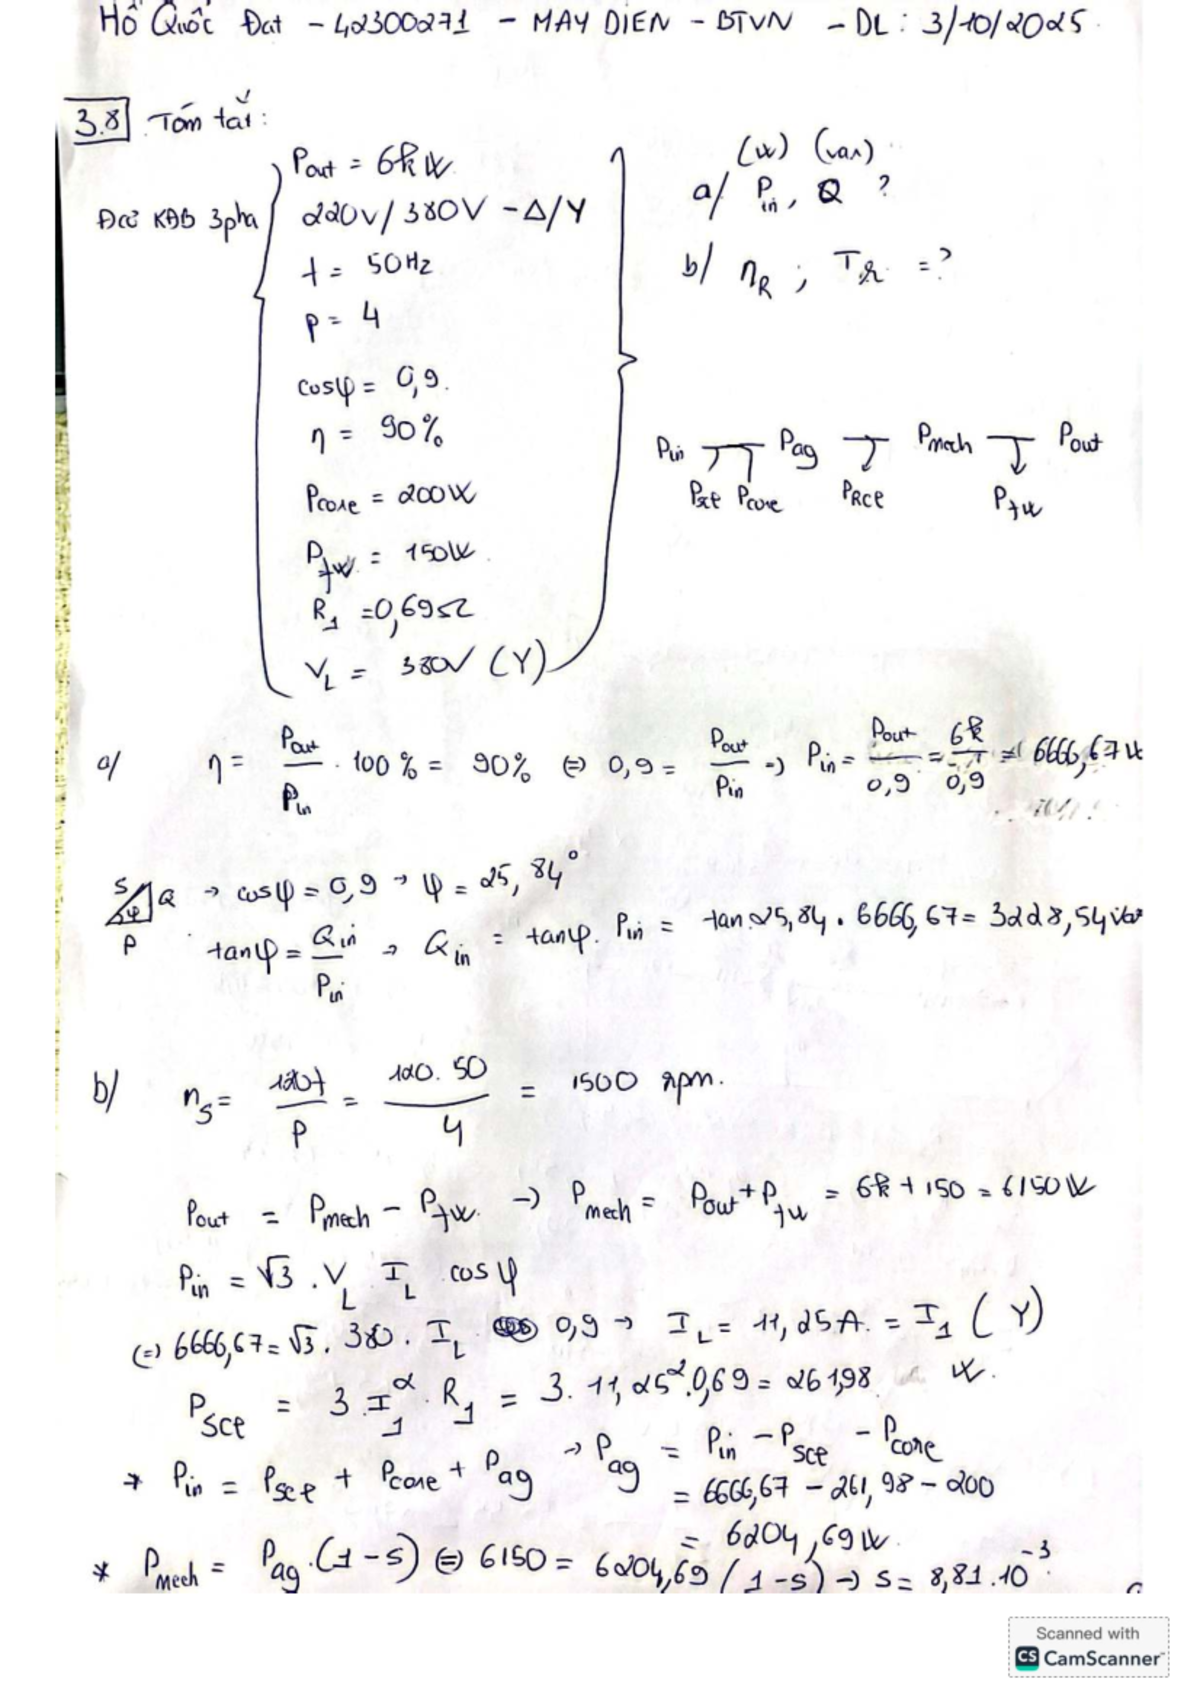 Hồ Quốc Đạt - 42300271 - MAY DIEN - BTVN - DL: 3/10/2025
3.8 Tóm tắt:
Đcơ KĐB 3pha
Pout = 6kW
220V/380V - Δ/Y
f = 50Hz
P = 4
cosφ = 0,9.
η = 90%
Pcore = 200W
Pfw = 150W
R1 = 0,69Ω
VL = 380V (Y)
(W) (var)
a/ Pin, Q ?
b/ nR ; TR = ?
Pin Pag Pmech Pout
Pscl Pcore PRCL Pfw
a/ η = Pout/Pin . 100% = 90% ⇔ 0,9 = Pout/Pin → Pin = Pout/0,9 = 6k/0,9 = 6666,67W
S Q φ P → cosφ = 0,9 → φ = 25,84°
tanφ = Qin/Pin → Qin = tanφ. Pin = tan25,84 . 6666,67 = 3228,54 var
b/ nS = 120f/P = 120.50/4 = 1500 rpm.
Pout = Pmech - Pfw. → Pmech = Pout + Pfw = 6k + 150 = 6150W
Pin = √3 . VL IL cosφ
(=) 6666,67 = √3 . 380 . IL 0,9 → IL = 11,25A. = I1 (Y)
PSCL = 3.I1² . R1 = 3. 11,25².0,69 = 261,98 W.
* Pin = Pscl + Pcore + Pag → Pag = Pin - Pscl - Pcore
= 6666,67 - 261,98 - 200
= 6204,69W.
* Pmech = Pag.(1-s) ⇔ 6150 = 6204,69(1-s) → s = 8,81.10⁻³
Scanned with
CS CamScanner